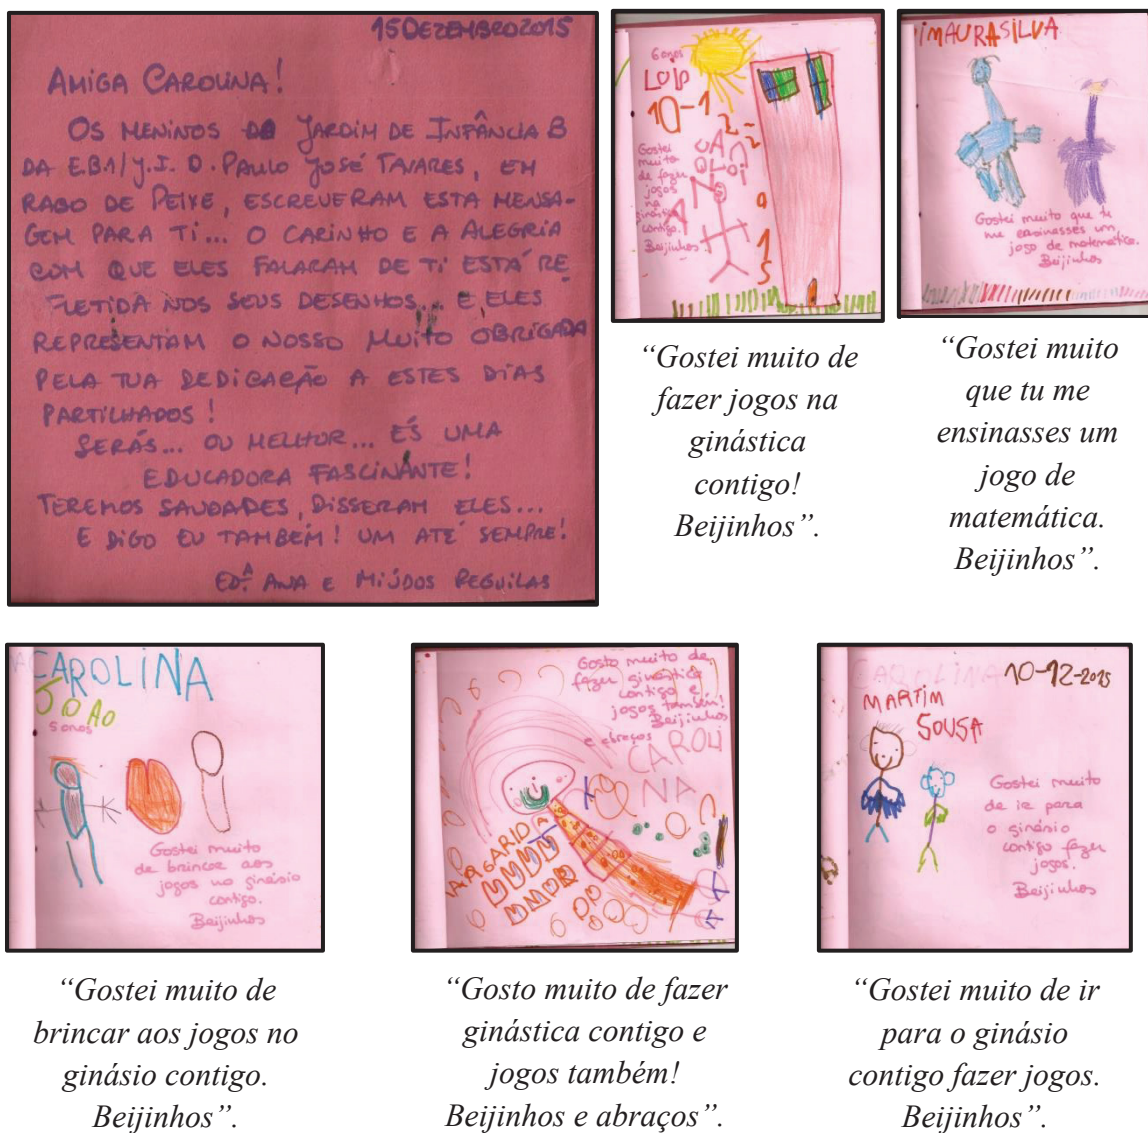 15 DEZEMBRO 2015
AMIGA CAROLINA!
OS MENINOS DO JARDIM DE INFÂNCIA B
DA EB1/J.I. D. PAULO JOSÉ TAVARES, EM
RABO DE PEIXE, ESCREVERAM ESTA MENSA-
GEM PARA TI... O CARINHO E A ALEGRIA
COM QUE ELES FALARAM DE TI ESTÁ RE
FLETIDA NOS SEUS DESENHOS... E ELES
REPRESENTAM O NOSSO MUITO OBRIGADA
PELA TUA DEDICAÇÃO A ESTES DIAS
PARTILHADOS!
SERÁS... OU MELHOR... ÉS UMA
EDUCADORA FASCINANTE!
TEREMOS SAUDADES, DISSERAM ELES...
E DIGO EU TAMBÉM! UM ATÉ SEMPRE!
ED.ª ANA E MIÚDOS REGUILAS
6 anos
10-1
2-
Gostei
muito
de fazer
jogos
na
ginástica
contigo.
Beijinhos.
“Gostei muito de
fazer jogos na
ginástica
contigo!
Beijinhos”.
IMAURASILVA
Gostei muito que tu
me ensinasses um
jogo de matemática.
Beijinhos
“Gostei muito
que tu me
ensinasses um
jogo de
matemática.
Beijinhos”.
CAROLINA
JOAO
5 anos
Gostei muito
de brincar aos
jogos no ginásio
contigo.
Beijinhos
“Gostei muito de
brincar aos jogos no
ginásio contigo.
Beijinhos”.
Gosto muito de
fazer ginástica
contigo e
jogos também!
Beijinhos
e abraços
CAROLI
NA
MARGARIDA
“Gosto muito de fazer
ginástica contigo e
jogos também!
Beijinhos e abraços”.
CAROLINA
10-12-2015
MARTIM
SOUSA
Gostei muito
de ir para
o ginásio
contigo fazer
jogos.
Beijinhos
“Gostei muito de ir
para o ginásio
contigo fazer jogos.
Beijinhos”.